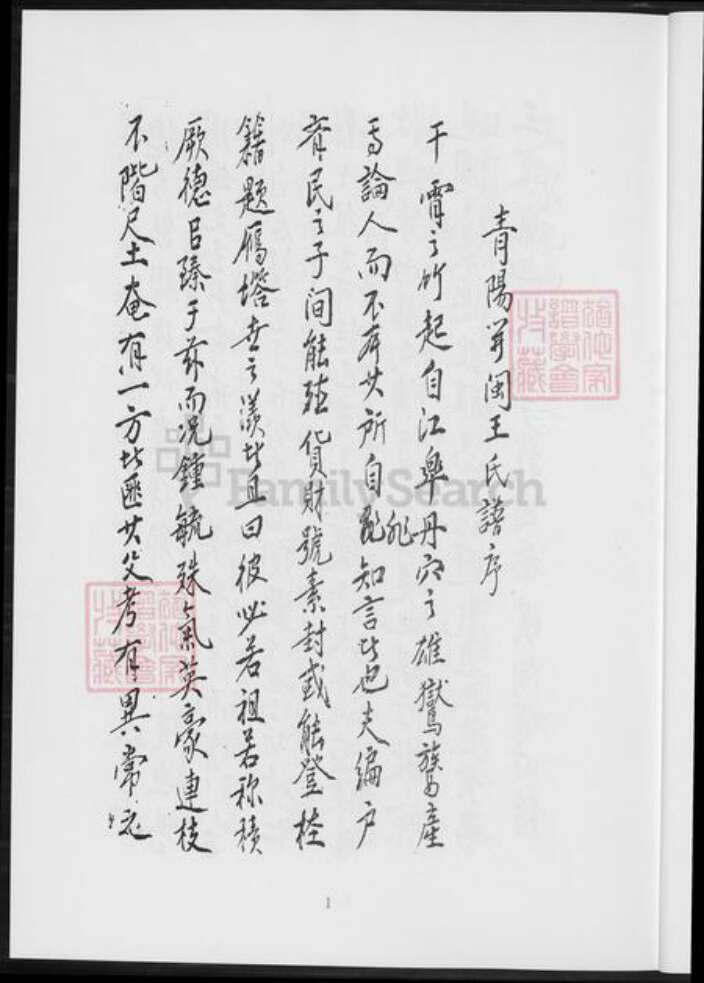 青陽開閩王氏譜序
干霄之竹起自江皐丹穴之雄鸑鷟產
焉論人而不奔其所自非知言者也夫編户
齊民之子间能殖貨財號素封或能登桂
籍題雁塔世之羨者且曰彼必若祖若称積
厥德㠯臻于兹而况鍾毓殊氣英豪連枝
不階尺土奄有一方者匪其父考有異常
FamilySearch
譜學會
特藏
1